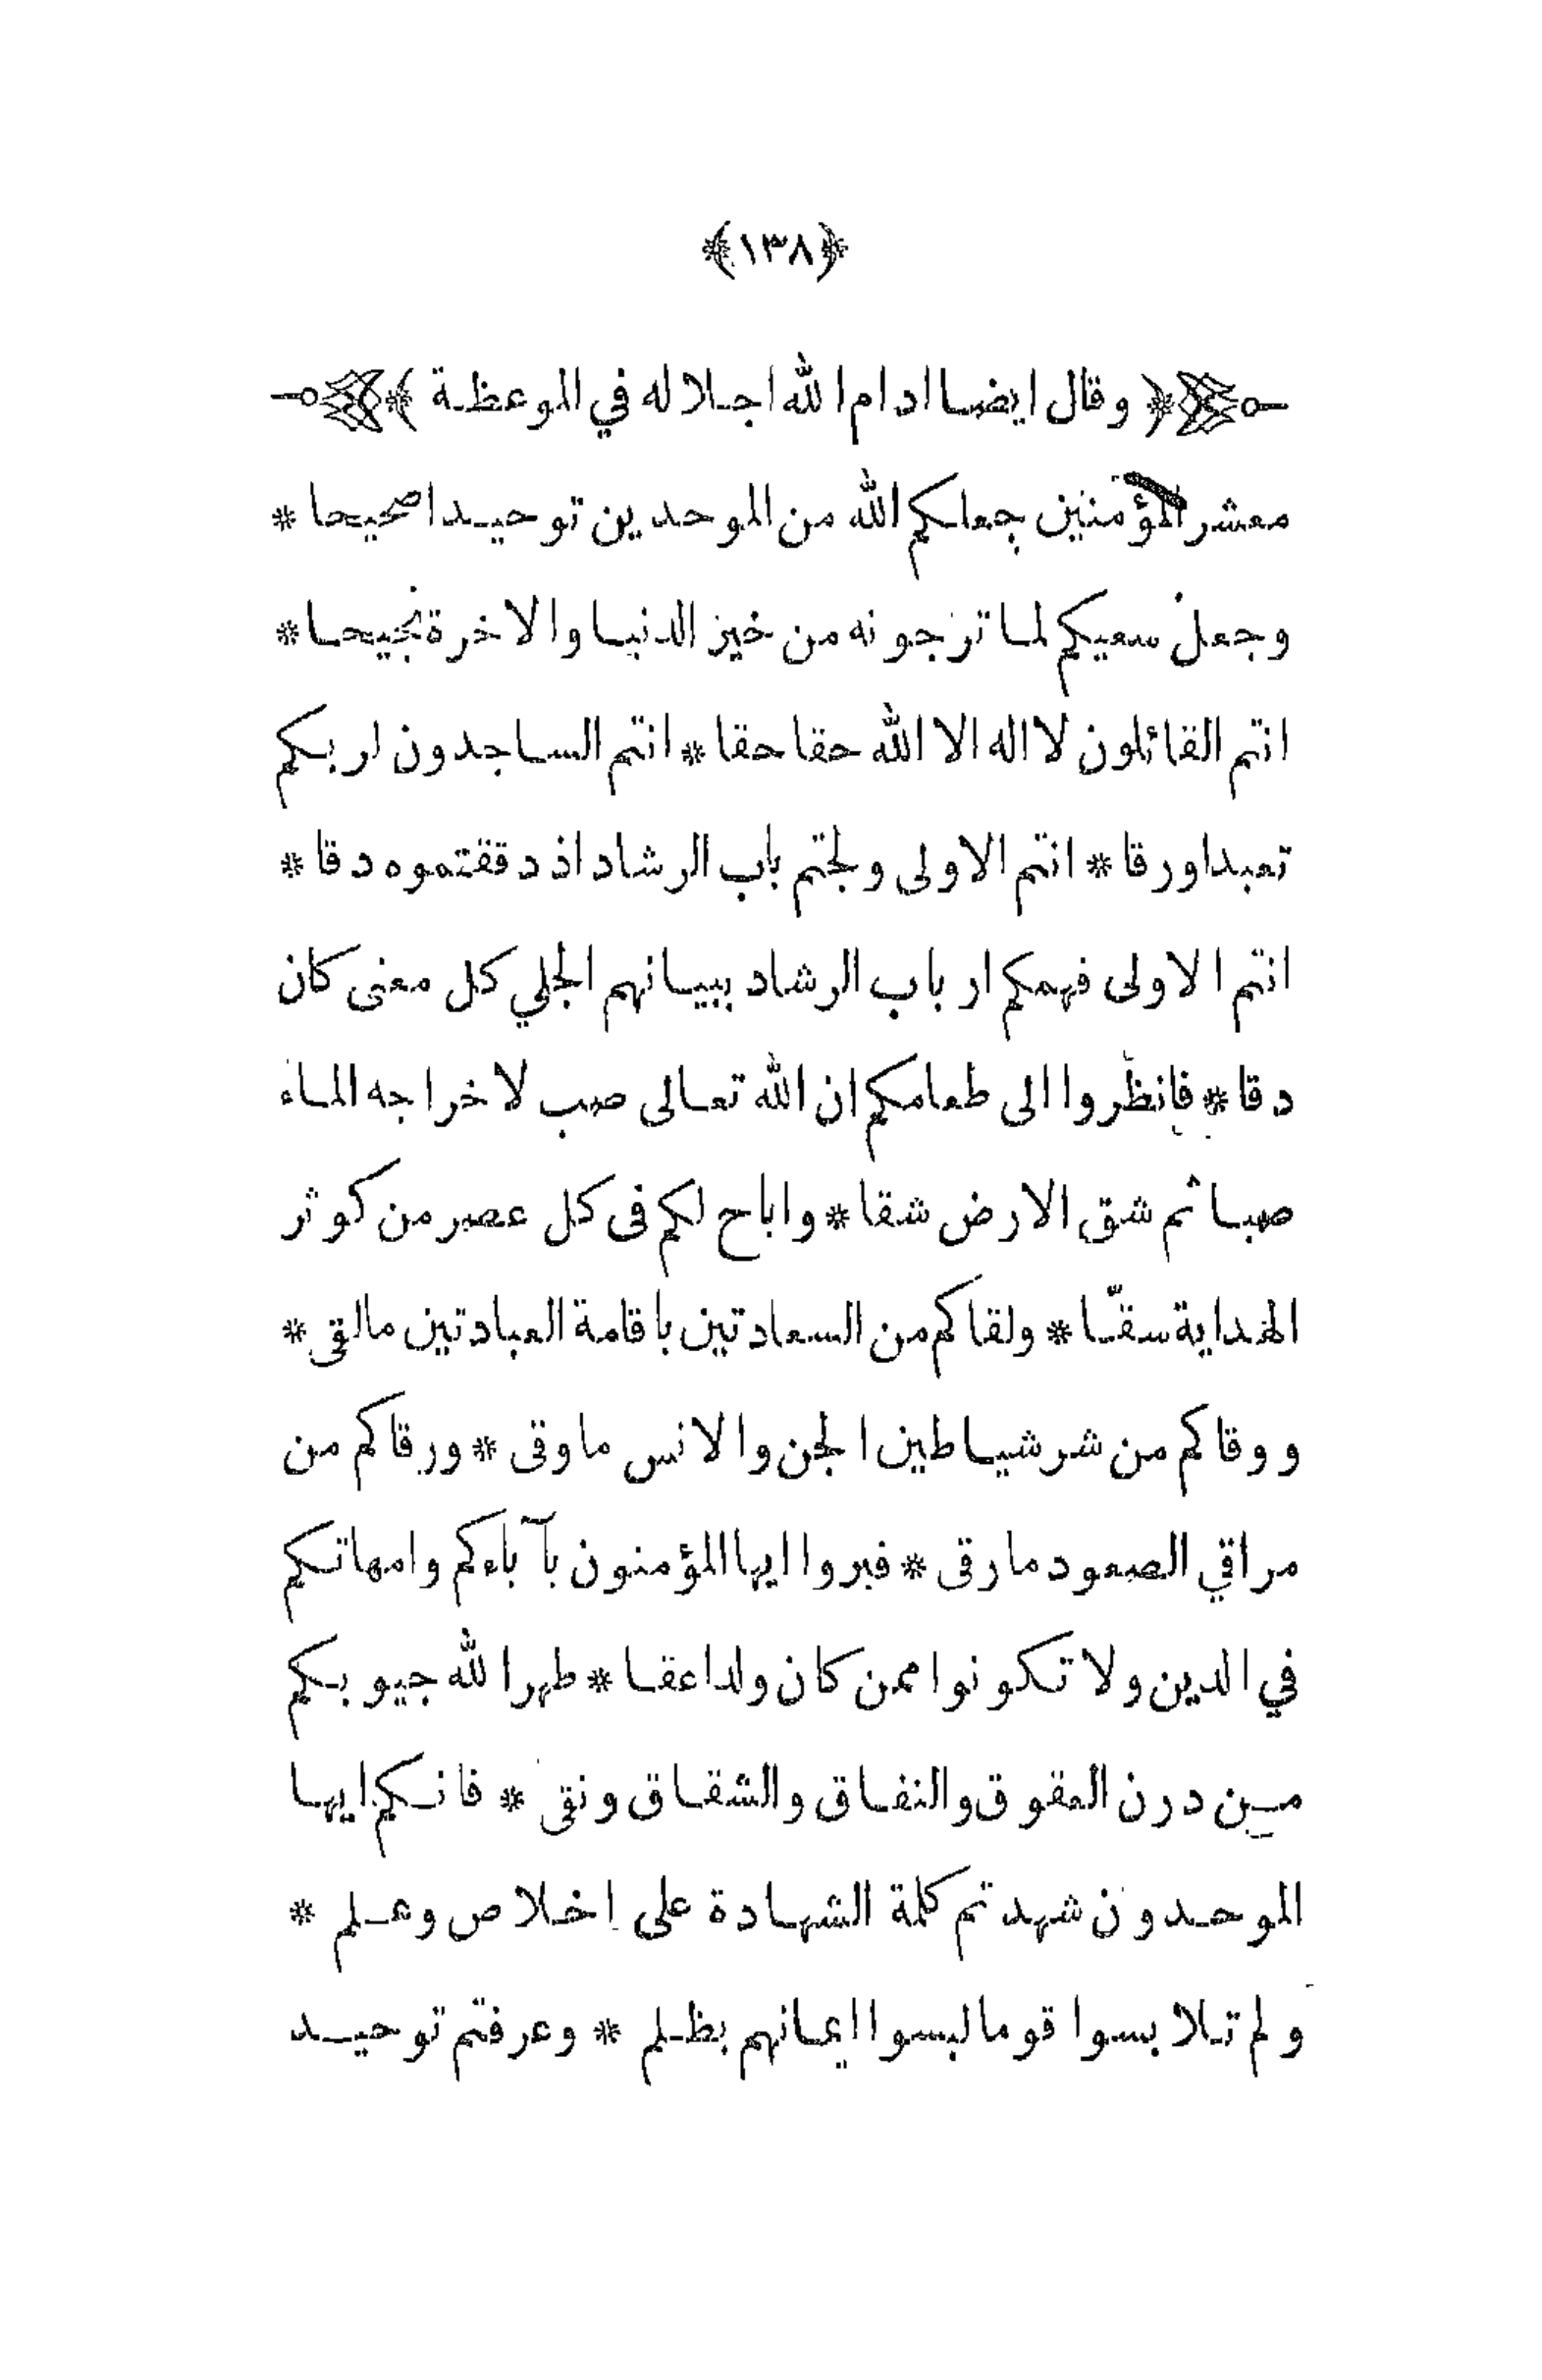 ﴿١٣٨﴾
﴿ وقال ايضا ادام الله اجلاله في الموعظة ﴾
معشر المؤمنين جعلكم الله من الموحدين توحيدا صحيحا *
وجعل سعيكم لما ترجونه من خير الدنيا والاخرة نجيحا *
انتم القائلون لا اله الا الله حقا حقا * انتم الساجدون لربكم
تعبدا ورقا * انتم الاولى ولجتم باب الرشاد اذ دققتموه دقا *
انتم الاولى فهمكم ارباب الرشاد ببيانهم الجلي كل معنى كان
دقا * فانظروا الى طعامكم ان الله تعالى صب لاخراجه الماء
صبا ثم شق الارض شقا * واباح لكم فى كل عصر من كوثر
الهداية سقّا * ولقاكم من السعادتين باقامة العبادتين مالقى *
ووقاكم من شر شياطين الجن والانس ماوقى * ورقاكم من
مراقي الصعود مارقى * فبروا ايها المؤمنون بآباءكم وامهاتكم
في الدين ولا تكونوا ممن كان ولدا عقا * طهر الله جيوبكم
من درن العقوق والنفاق والشقاق ونقى * فانكم ايها
الموحدون شهدتم كلمة الشهادة على اخلاص وعلم *
ولم تلابسوا قوما لبسوا ايمانهم بظلم * وعرفتم توحيد